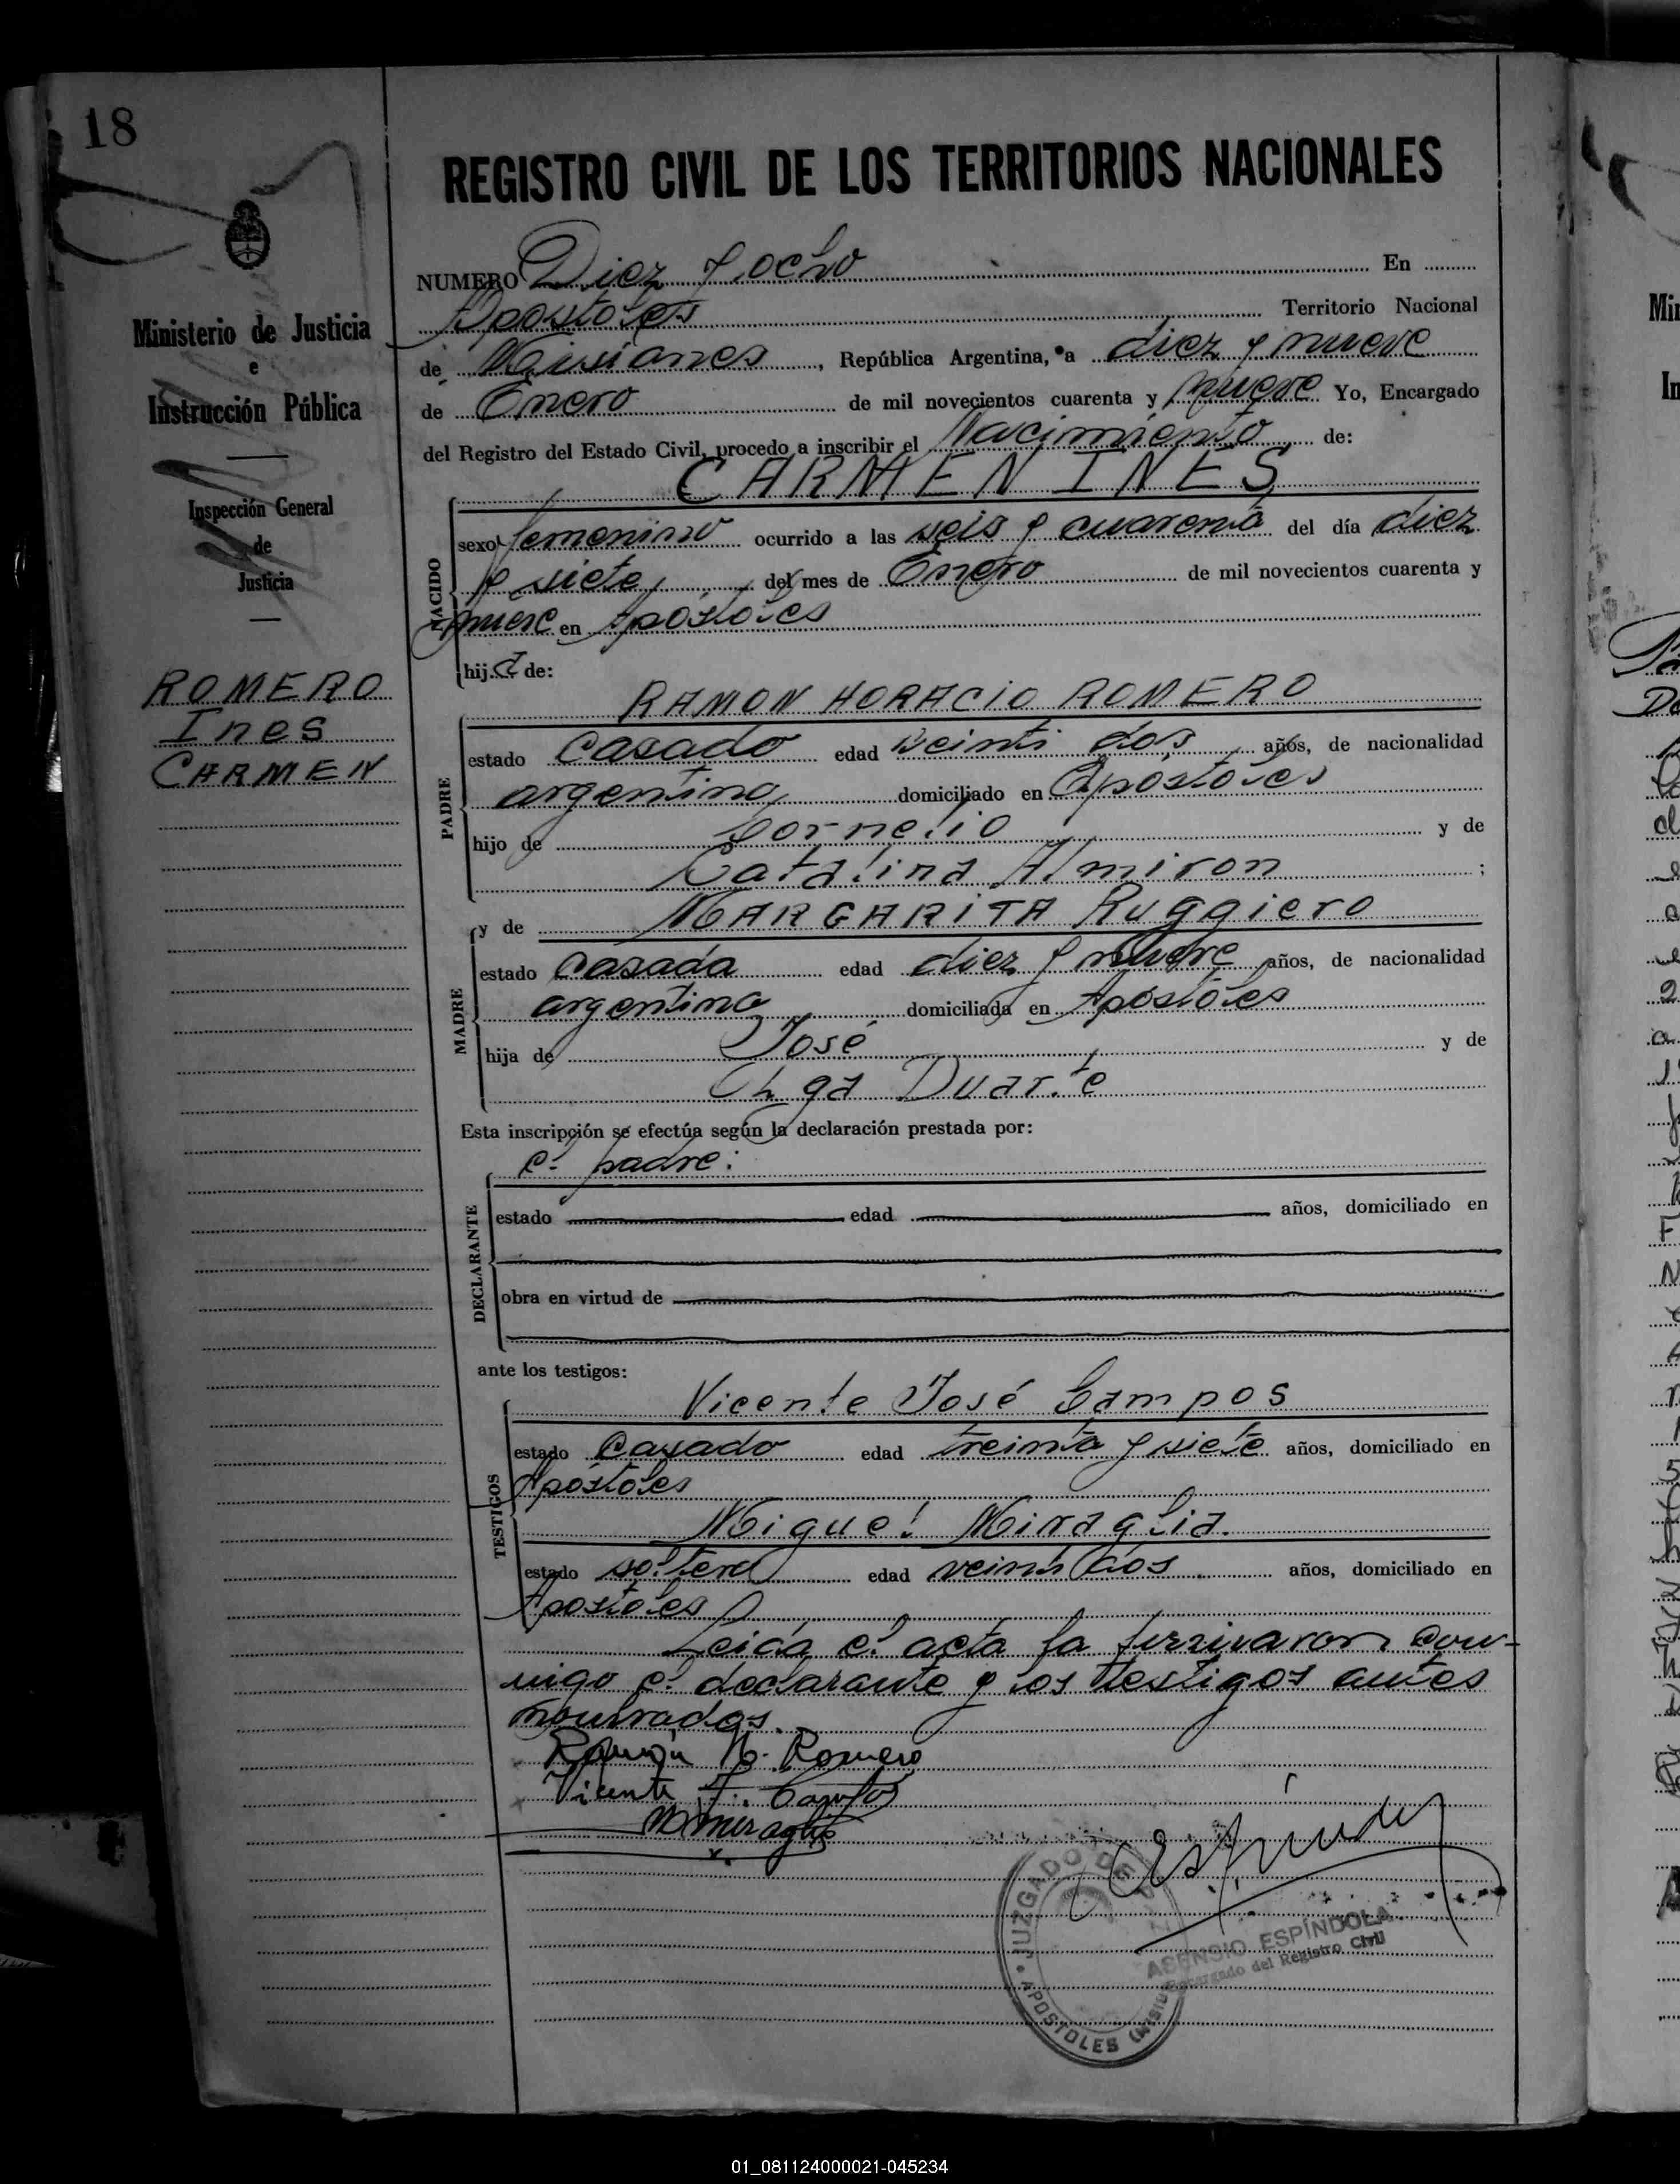 18
REGISTRO CIVIL DE LOS TERRITORIOS NACIONALES
Ministerio de Justicia
e
Instrucción Pública
Inspección General
de
Justicia
ROMERO
Ines
CARMEN
NUMERO Diez y ocho En
Apostoles Territorio Nacional
de Misiones, República Argentina, a diez y nueve
de Enero de mil novecientos cuarenta y nueve Yo, Encargado
del Registro del Estado Civil, procedo a inscribir el Nacimiento de:
CARMEN INES
NACIDO
sexo femenino ocurrido a las seis y cuarenta del día diez
y siete, del mes de Enero de mil novecientos cuarenta y
nueve en Apóstoles
hija de:
RAMON HORACIO ROMERO
PADRE
estado casado edad veinti dos años, de nacionalidad
argentino domiciliado en Apóstoles
hijo de Cornelio y de
Catalina Almiron ;
y de MARGARITA Ruggiero
MADRE
estado casada edad diez y nueve años, de nacionalidad
argentina domiciliada en Apóstoles
hija de José y de
Olga Duarte
Esta inscripción se efectúa según la declaración prestada por:
el padre:
DECLARANTE
estado edad años, domiciliado en
obra en virtud de
ante los testigos:
TESTIGOS
Vicente José Campos
estado casado edad treinta y siete años, domiciliado en
Apóstoles
Miguel Miraglia.
estado soltero edad veinti dos años, domiciliado en
Apostoles
Leida el acta la firmaron con-
migo el declarante y los testigos antes
nombrados.
Ramón H. Romero
Vicente J. Campos
M Miraglia
JUZGADO DE PAZ
APOSTOLES
ASENSIO ESPÍNDOLA
Encargado del Registro Civil
01_081124000021-045234